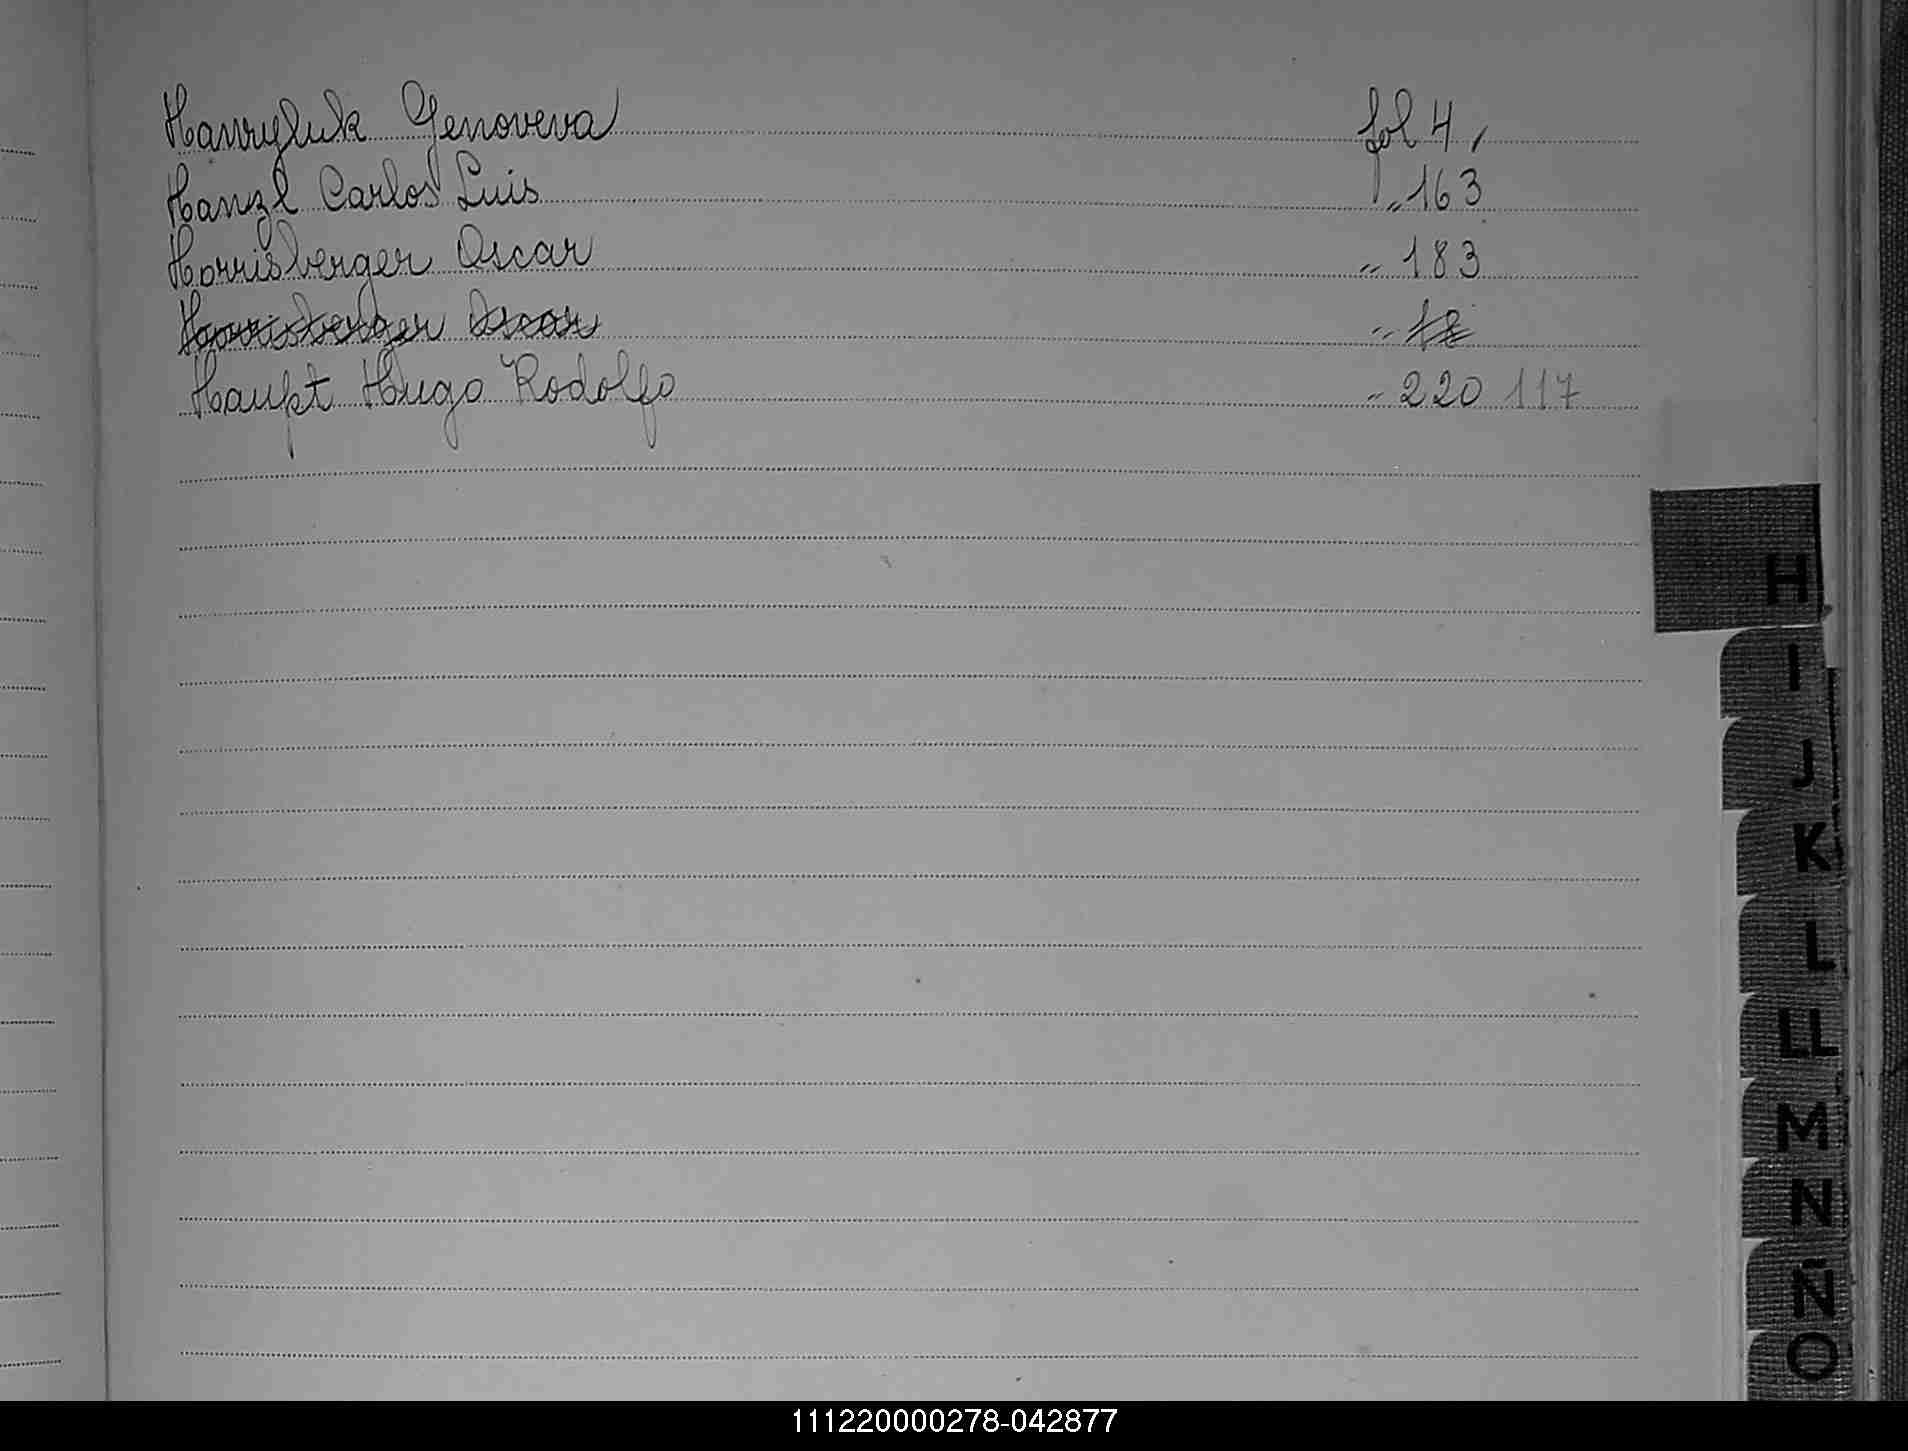 Hawryluk Genoveva fol 4,
Hanzl Carlos Luis " 163
Horrisberger Oscar " 183
Horrisberger Oscar " 18
Haupt Hugo Rodolfo " 220 117
H
I
J
K
L
LL
M
N
Ñ
O
111220000278-042877